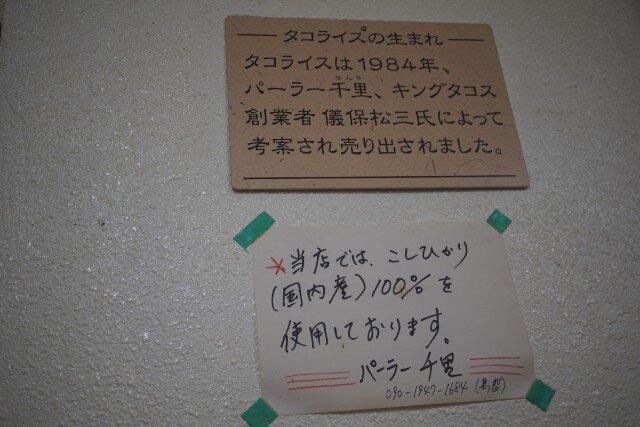 タコライスの生まれ
タコライスは1984年、
せんり
パーラー千里、キングタコス
創業者 儀保松三氏によって
考案され売り出されました。
＊当店では、こしひかり
(国内産)100%を
使用しております。
パーラー千里
090-1947-1684